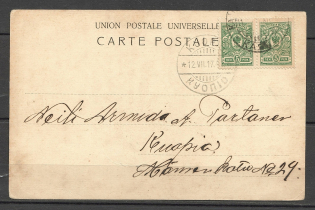 UNION POSTALE UNIVERSELLE
CARTE POSTALE
KUOPIO
Neiti Armida A. Partanen
Kuopio
Hamenkatu No 29.